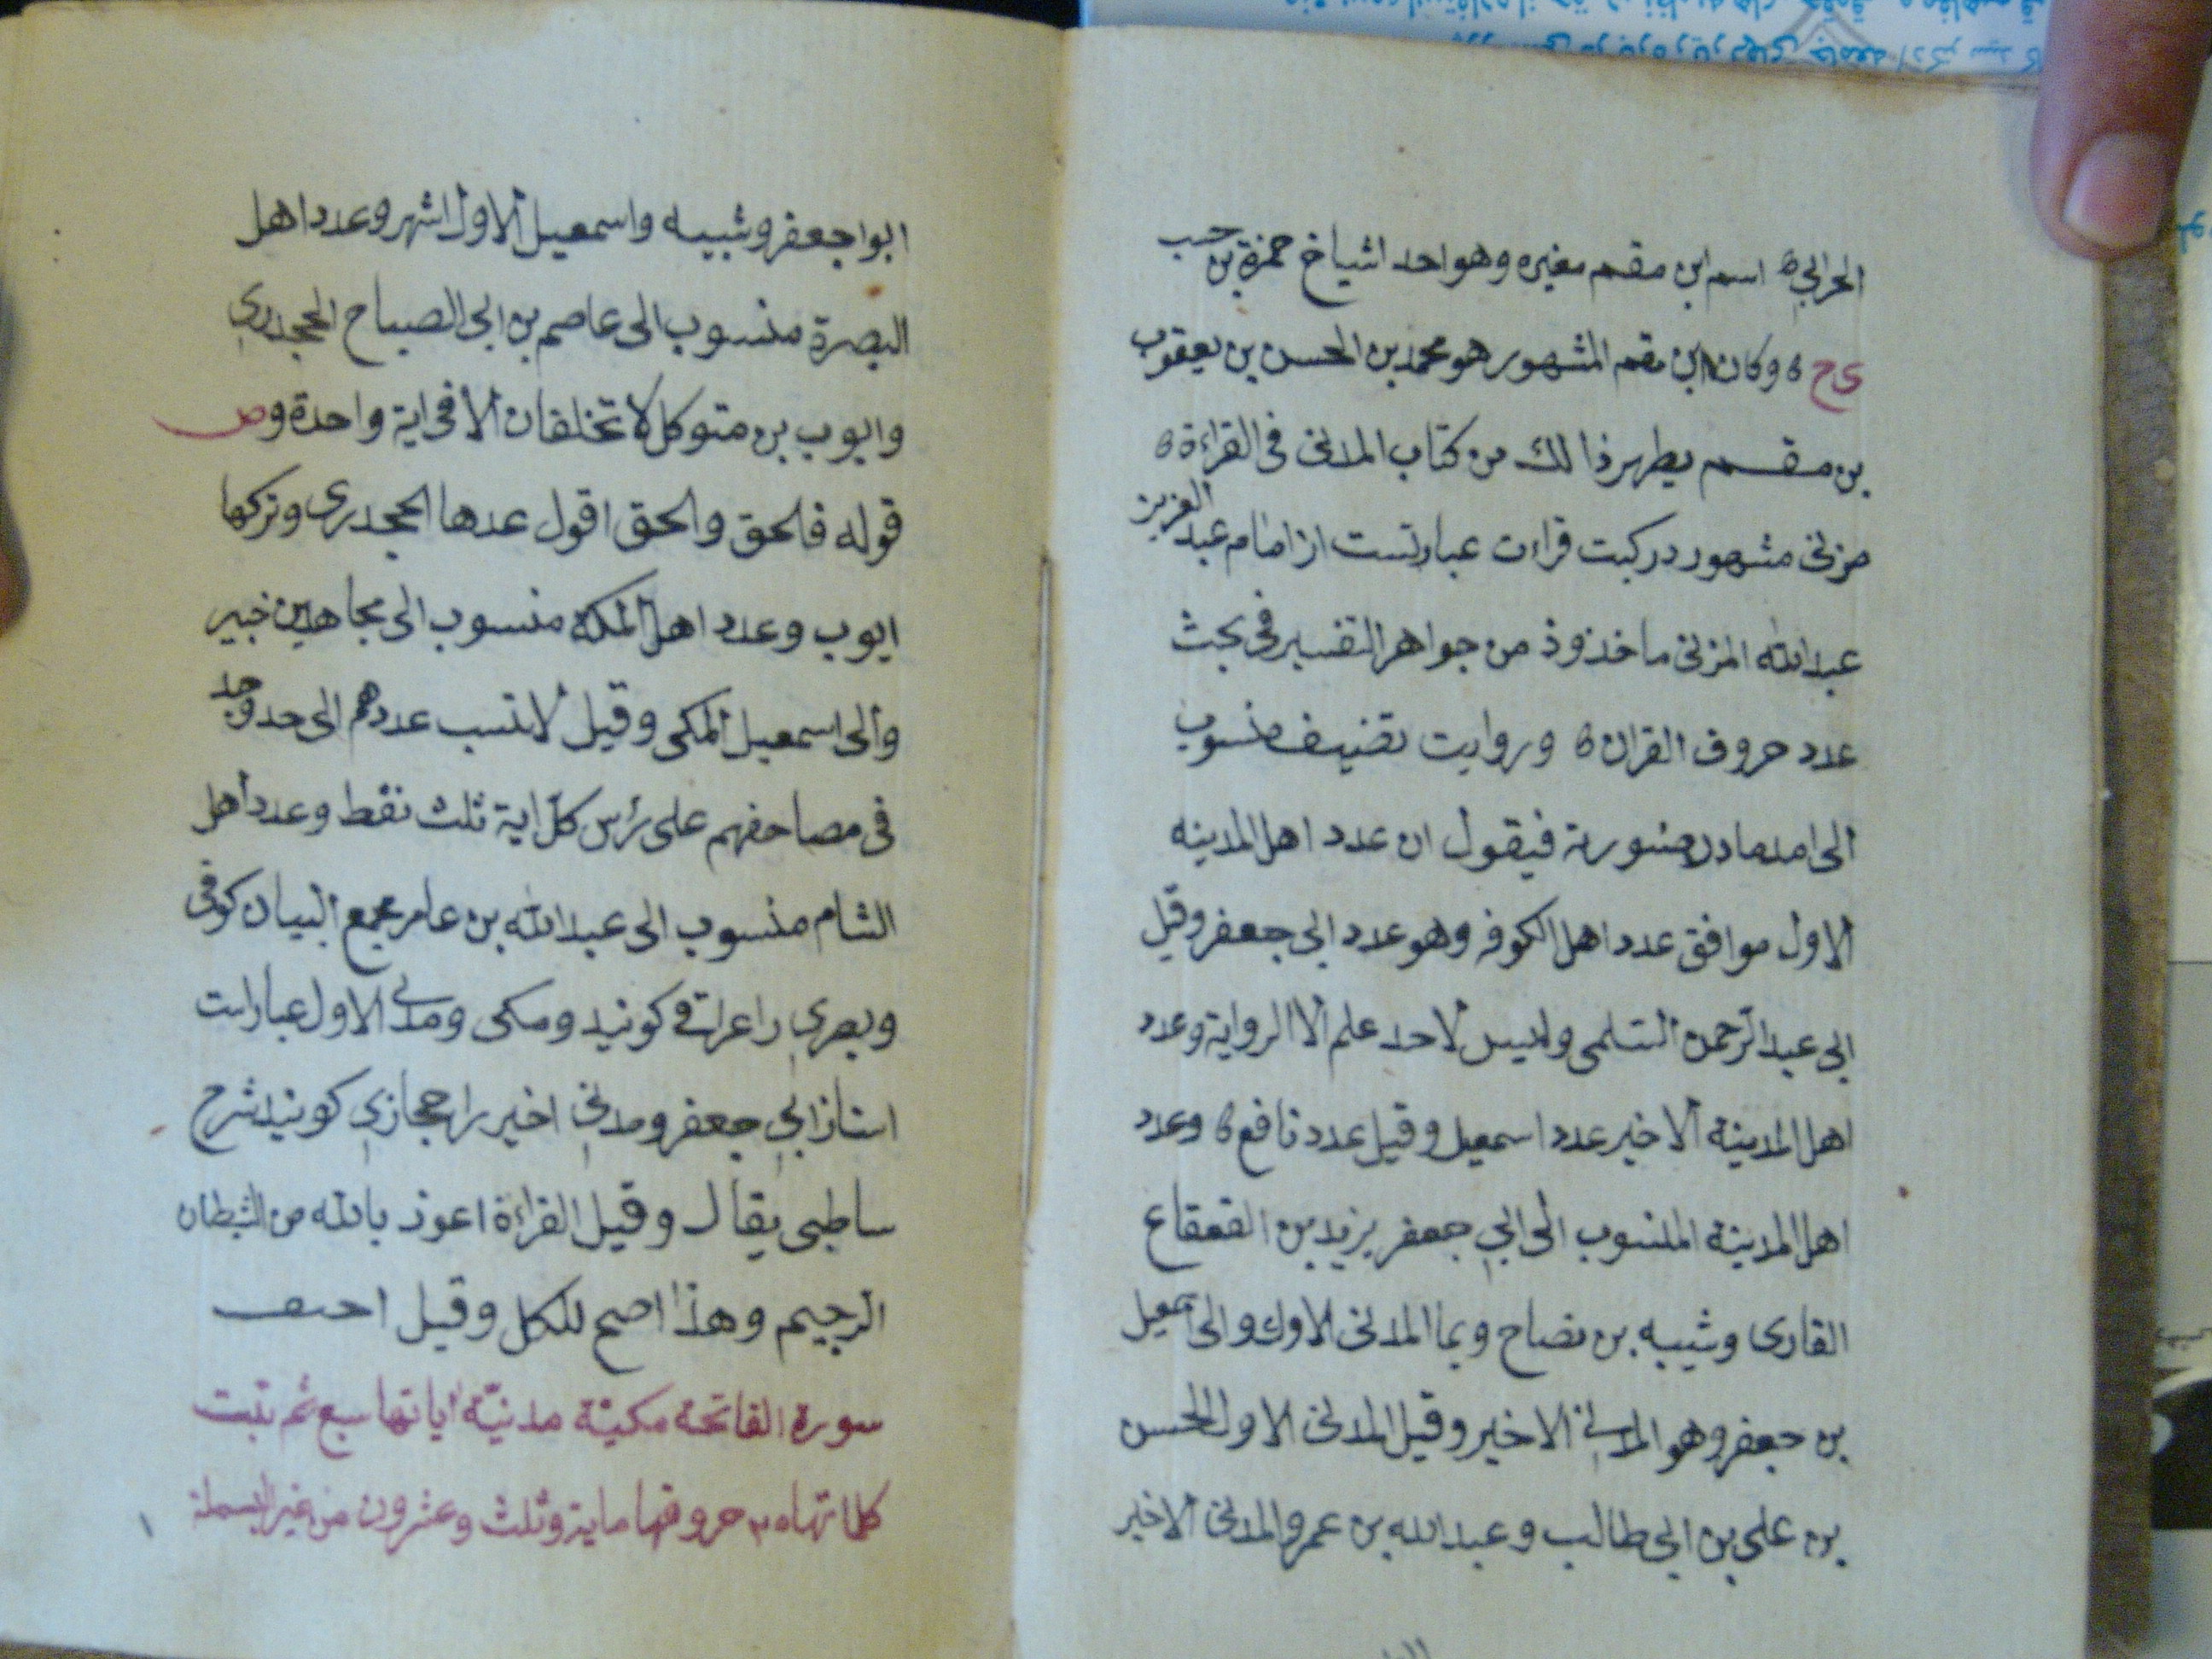 الحرابي ٥ اسم ابن مقسم مغيره وهو احد اشياخ حمزة بن حبيب
ى ح ٥ وكان ابن مقسم المشهور هو محمد بن الحسن بن يعقوب
بن مقسم يطهر ذالك من كتاب المدنى فى القراءة ٥
مزنى مشهور در كبت قراءت عبارتست از امام عبد العزيز
عبدالله المزنى ماخذوذ من جواهر التفسير فى بحث
عدد حروف القران ٥ وروايت تضيف منسوب
الى فيقول ان عدد اهل المدينه
الاول موافق عدد اهل الكوفه وهو عدد ابى جعفر وقيل
ابى عبد الرّحمن السّلمى وليس لاحد علم الا الرواية وعدد
اهل المدينة الاخير عدد اسمعيل وقيل عدد نافع ٥ وعدد
اهل المدينة المنسوب الى ابي جعفر يزيد بن القعقاع
القارى وشيبه بن نصاح وبما المدنى الاول والى اسمعيل
بن جعفر وهو المدني الاخير وقيل المدنى الاول الحسن
بن على بن ابى طالب وعبدالله بن عمر والمدنى الاخير
ابوا جعفر وشيبه واسمعيل الاول اشهر وعدد اهل
البصرة منسوب الى عاصم بن ابى الصباح الجحدري
وايوب بن متوكل لا تختلفان الا فى اية واحدة وص
قوله فالحق والحق اقول عدها الجحدرى وتركها
ايوب وعدد اهل المكة منسوب الى مجاهد بن جبير
والى اسمعيل المكى وقيل لا ننسب عددهم الى احد وجد
فى مصاحفهم على رئس كلّ اية ثلث نقط وعدد اهل
الشام منسوب الى عبدالله بن عامر مجمع البيان كوفى
وبصري را عراقى كونيد ومكى ومدني الاول عبارات
است از ابي جعفر ومدني اخير را حجازي كونيد شرح
ساطبى يقال وقيل القراءة اعوذ بالله من الشيطان
الرجيم وهذا اصح للكل وقيل
سورة الفاتحة مكيّة مدنيّة اياتها سبع
كلماتها حروفها ماية وثلث وعشرون من غير البسملة